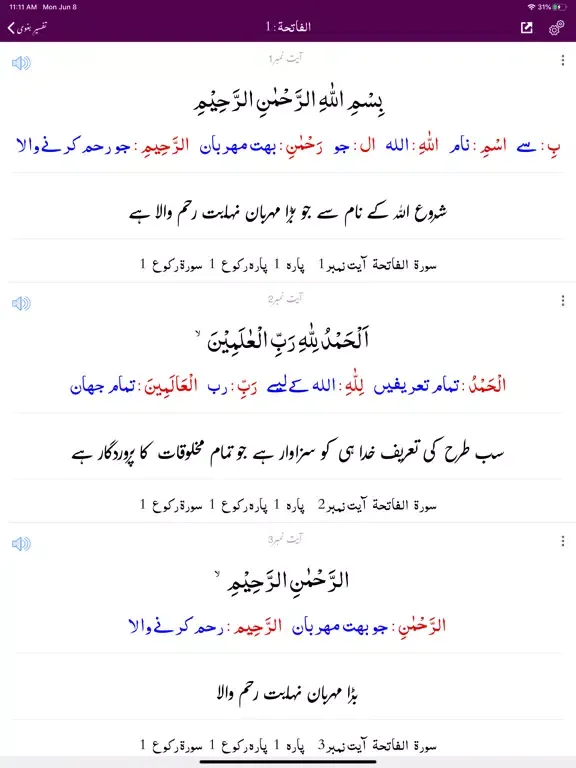 11:11 AM Mon Jun 8 31%
تفسیر بغوی الفاتحة : 1
آیت نمبر1
بِسْمِ اللّٰهِ الرَّحْمٰنِ الرَّحِيْمِ
بِ : سے اسْمِ : نام اللّٰهِ : الله ال : جو رَحْمٰنِ : بهت مهربان الرَّحِيمِ : جو رحم کرنے والا
شروع اللہ کے نام سے جو بڑا مہربان نہایت رحم والا ہے
سورة الفاتحة آیت نمبر1 پاره 1 پاره رکوع 1 سورة رکوع 1
آیت نمبر2
اَلْحَمْدُ لِلّٰهِ رَبِّ الْعٰلَمِيْنَ ۙ
الْحَمْدُ : تمام تعریفیں لِلّٰهِ : الله کے لیے رَبِّ : رب الْعَالَمِينَ : تمام جهان
سب طرح کی تعریف خدا ہی کو سزاوار ہے جو تمام مخلوقات کا پروردگار ہے
سورة الفاتحة آیت نمبر2 پاره 1 پاره رکوع 1 سورة رکوع 1
آیت نمبر3
الرَّحْمٰنِ الرَّحِيْمِ ۙ
الرَّحْمٰنِ : جو بهت مهربان الرَّحِيم : رحم کرنے والا
بڑا مہربان نہایت رحم والا
سورة الفاتحة آیت نمبر3 پاره 1 پاره رکوع 1 سورة رکوع 1